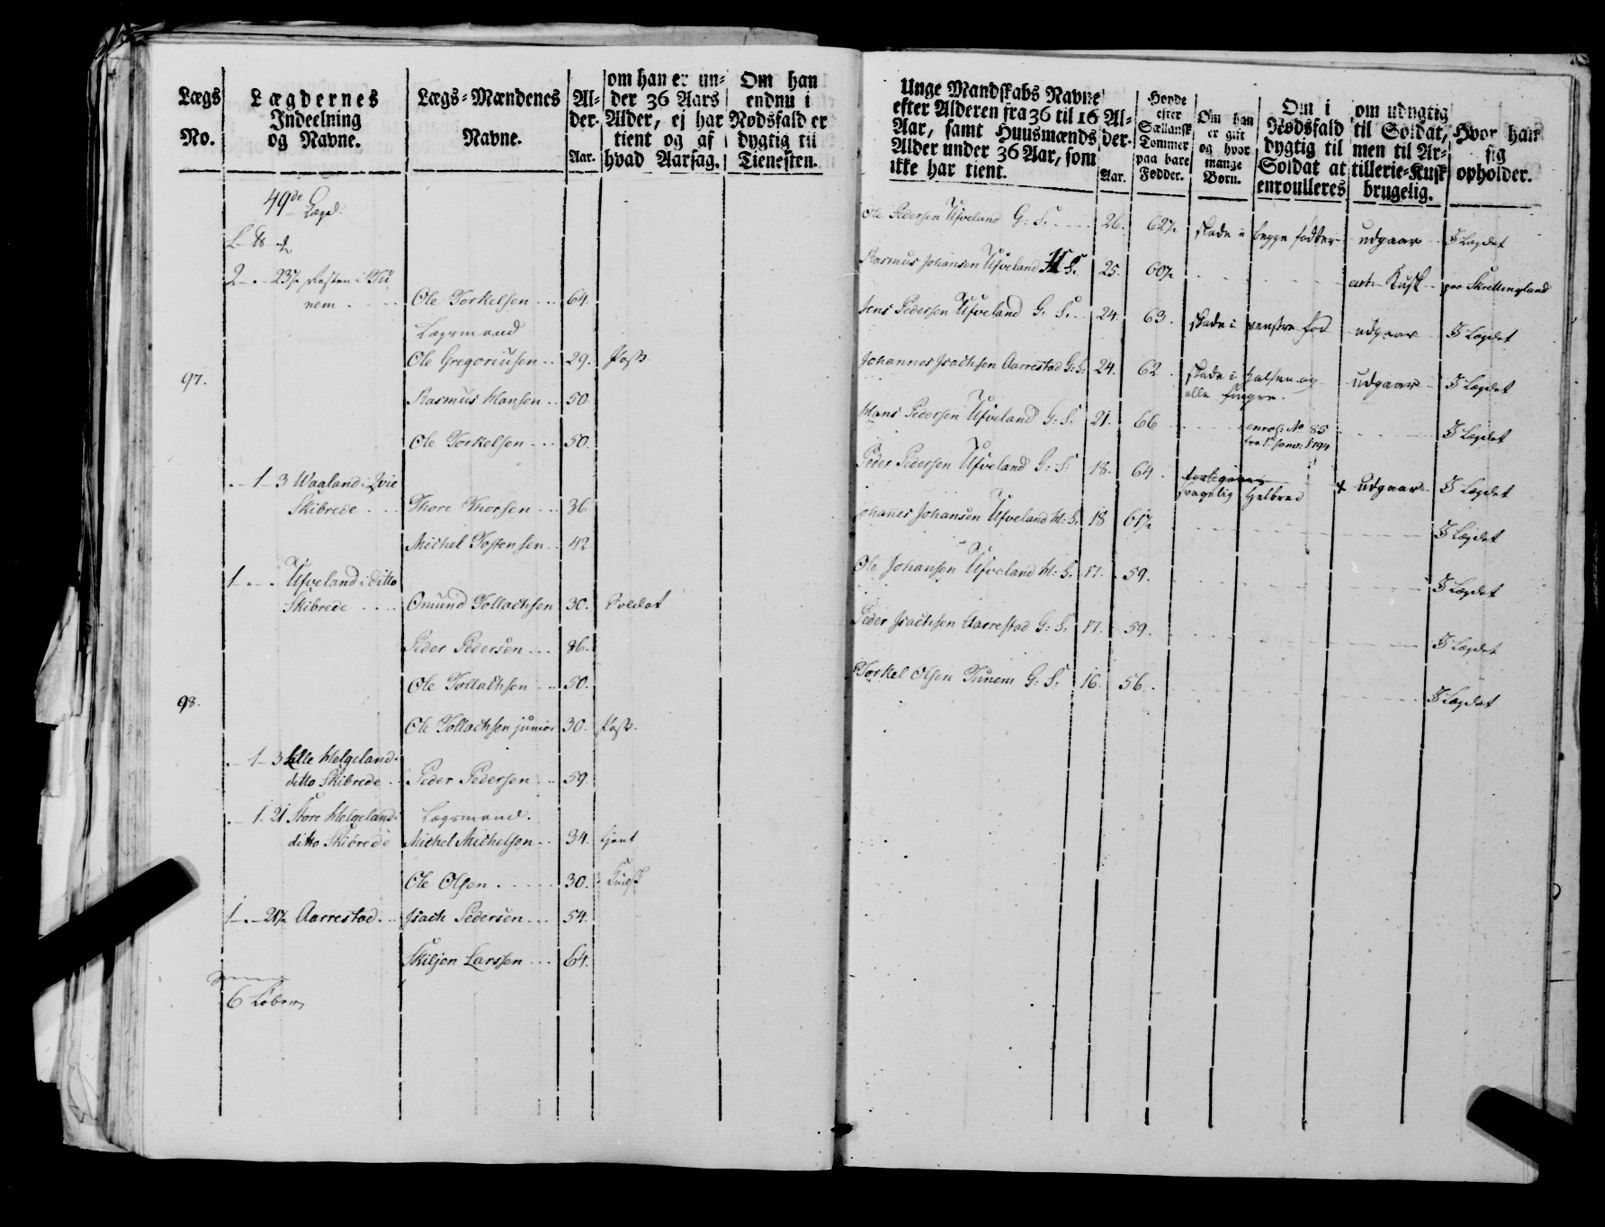 Lægs
No.
Lægdernes
Indeelning
og Navne.
Lægs-Mændenes
Navne.
Al-
der.
Aar.
om han er un-
der 36 Aars
Alder, ej har
tient og af
hvad Aarsag.
Om han
endnu i
Nødsfald er
dygtig til
Tienesten.
49de Lægd.
2 - . - 23½ Presten i Tu
nem . . . .
Ole Torkelsen . . 64.
Lægsmand
Ole Gregoriusen . . 29.
97.
Rasmus Hansen . . 50
Ole Torkelsen . . . 50.
. - 1 - 3 Waaland i
Skibrede . . .
Thore Thorsen . . . 36
Michel Tostensen . . 42
1 . - . Ufveland i ditto
Skibrede . . . .
Omund Tollachsen 30. Soldat
Peder Pedersen . . . 36.
Ole Tollachsen . . . 50.
98.
Ole Tollachsen junior 30.
. - 1 - 3 Lille Helgeland
ditto Skibrede . .
Peder Pedersen . . . 59
. - 1. 21 Store Helgeland
ditto Skibrede
Lægsmand.
Michel Michelsen . . 34. tjent
Ole Olsen . . . . . 30. Kudsk
1 - . - 21½ Aarrestad . .
Isach Pedersen . . . 54.
Skiljon Larssen . . . 64.
6 Løber
Unge Mandskabs Navne
efter Alderen fra 36 til 16
Aar, samt Huusmænds
Alder under 36 Aar, som
ikke har tient.
Al-
der.
Aar.
Høyde
efter
Siællansk
Tommer
paa bare
Fødder.
Om han
er gift
og hvor
mange
Børn.
Om i
Nødsfald
dygtig til
Soldat at
enroulleres
om udygtig
til Soldat,
men til Ar-
tillerie-Kusk
brugelig.
Hvor han
sig
opholder.
Ole Pedersen Ufveland G: S. . . . . 26. 62½ skade i begge fødder - udgaar I Lægdet
Rasmus Johansen Ufveland H S. 25. 60½ art: Kusk - paa Skrettingland
Jens Pedersen Ufveland G. S. . . 24. 63. skade i venstre fod udgaar I Lægdet
Johannes Isachsen Aarrestad G: S. 24. 62. skade i halsen og udgaar I Lægdet
alle fingre.
Hans Pedersen Ufveland G: S. 21. 66 enrol: No 85 I Lægdet
fra 1 Janv: 1794
Peder Pedersen Ufveland G: S. 18. 64.
svagelig Helbred + udgaar I Lægdet
Johannes Johansen Ufveland H: S. 18 61½ I Lægdet
Ole Johansen Ufveland H: S. 17. 59. I Lægdet
Peder Isachsen Aarrestad G: S. 17. 59. I Lægdet
Torkel Olsen Tunem G: S. 16. 56. I Lægdet